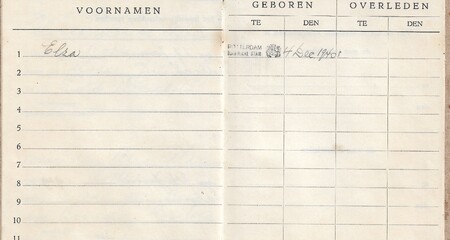 VOORNAMEN
GEBOREN
OVERLEDEN
TE DEN TE DEN
1 Elsa ROTTERDAM 4 Dec 1940
2
3
4
5
6
7
8
9
10
11